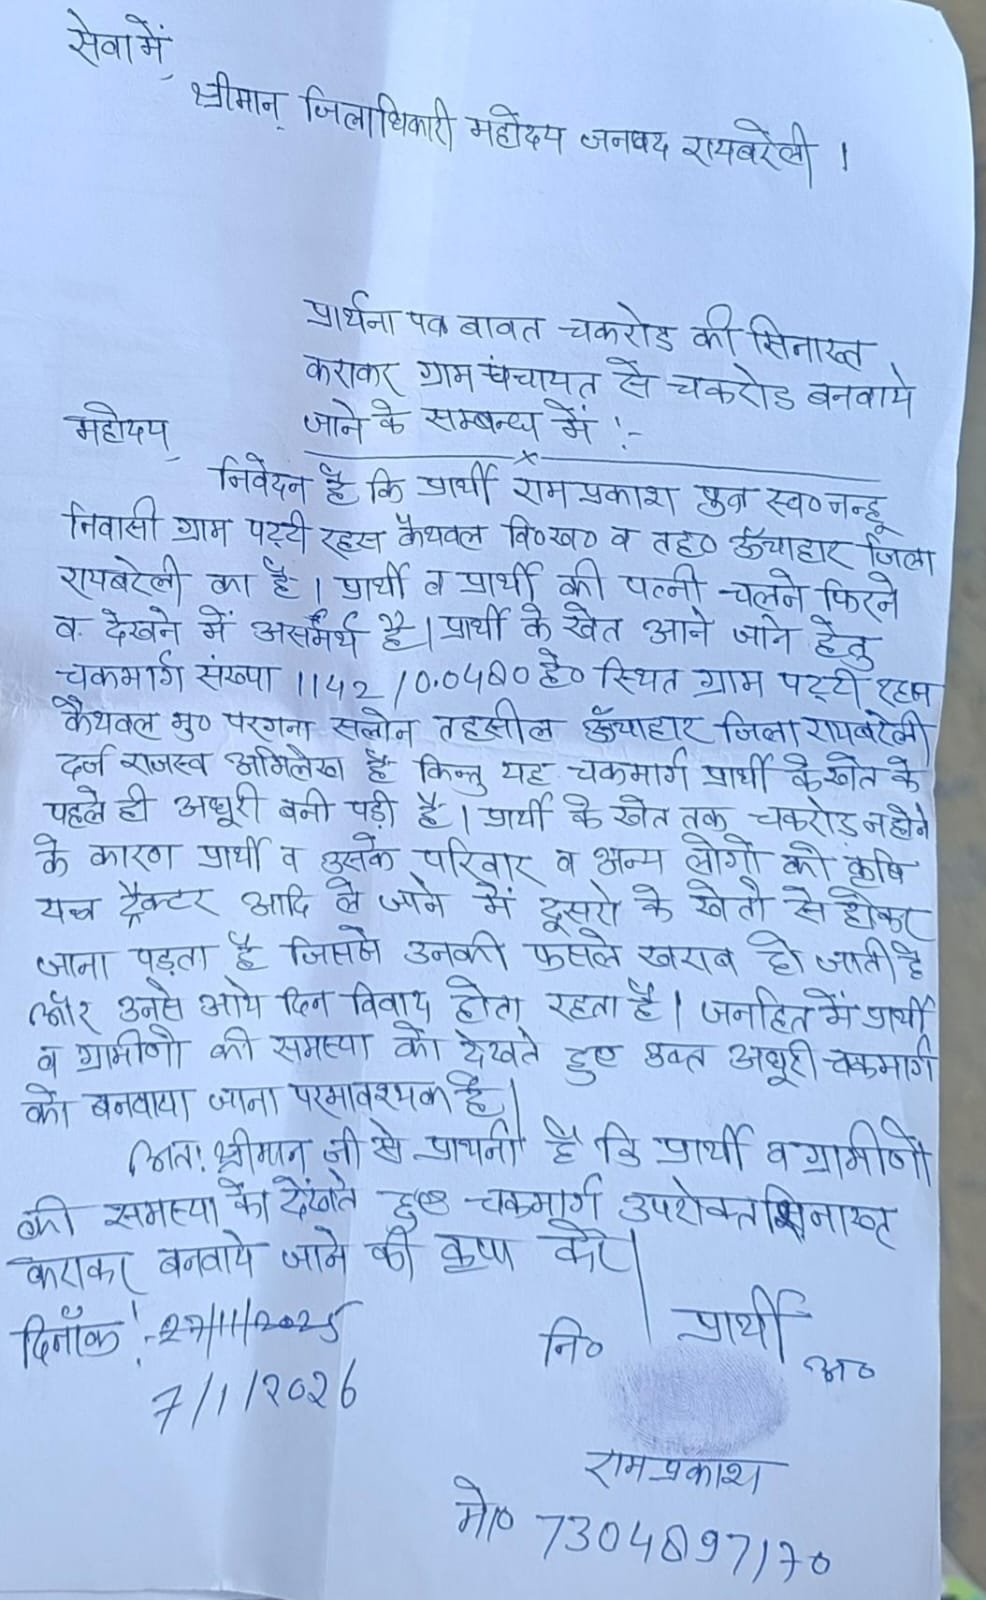 सेवा में,
श्रीमान् जिलाधिकारी महोदय जनपद रायबरेली ।
प्रार्थना पत्र बावत चकरोड की सिनाख्त
कराकर ग्राम पंचायत से चकरोड बनवाये
जाने के सम्बन्ध में :-
महोदय,
निवेदन है कि प्रार्थी राम प्रकाश पुत्र स्व० नन्हू
निवासी ग्राम पट्टी रहस कैथवल वि०ख० व तह० ऊँचाहार जिला
रायबरेली का है । प्रार्थी व प्रार्थी की पत्नी चलने फिरने
व देखने में असमर्थ है । प्रार्थी के खेत आने जाने हेतु
चकमार्ग संख्या 1142 / 0.0480 हे० स्थित ग्राम पट्टी रहस
कैथवल मु० परगना सलोन तहसील ऊँचाहार जिला रायबरेली
दर्ज राजस्व अभिलेख है किन्तु यह चकमार्ग प्रार्थी के खेत के
पहले ही अधूरी बनी पड़ी है । प्रार्थी के खेत तक चकरोड़ न होने
के कारण प्रार्थी व उसके परिवार व अन्य लोगों को कृषि
यन्त्र ट्रैक्टर आदि ले जाने में दूसरो के खेतो से होकर
जाना पड़ता है जिससे उनकी फसले खराब हो जाती है
और उनसे आये दिन विवाद होता रहता है । जनहित में प्रार्थी
व ग्रामीणो की समस्या को देखते हुए उक्त अधूरी चकमार्ग
को बनवाया जाना परमावश्यक है ।
अतः श्रीमान जी से प्राथना है कि प्रार्थी व ग्रामीणों
की समस्या को देखते हुए चकमार्ग उपरोक्त सिनाख्त
कराकर बनवाये जाने की कृपा करें ।
दिनाँक :- 27/11/2025
नि० प्रार्थी अ०
7/1/2026
राम प्रकाश
मो० 7304897170